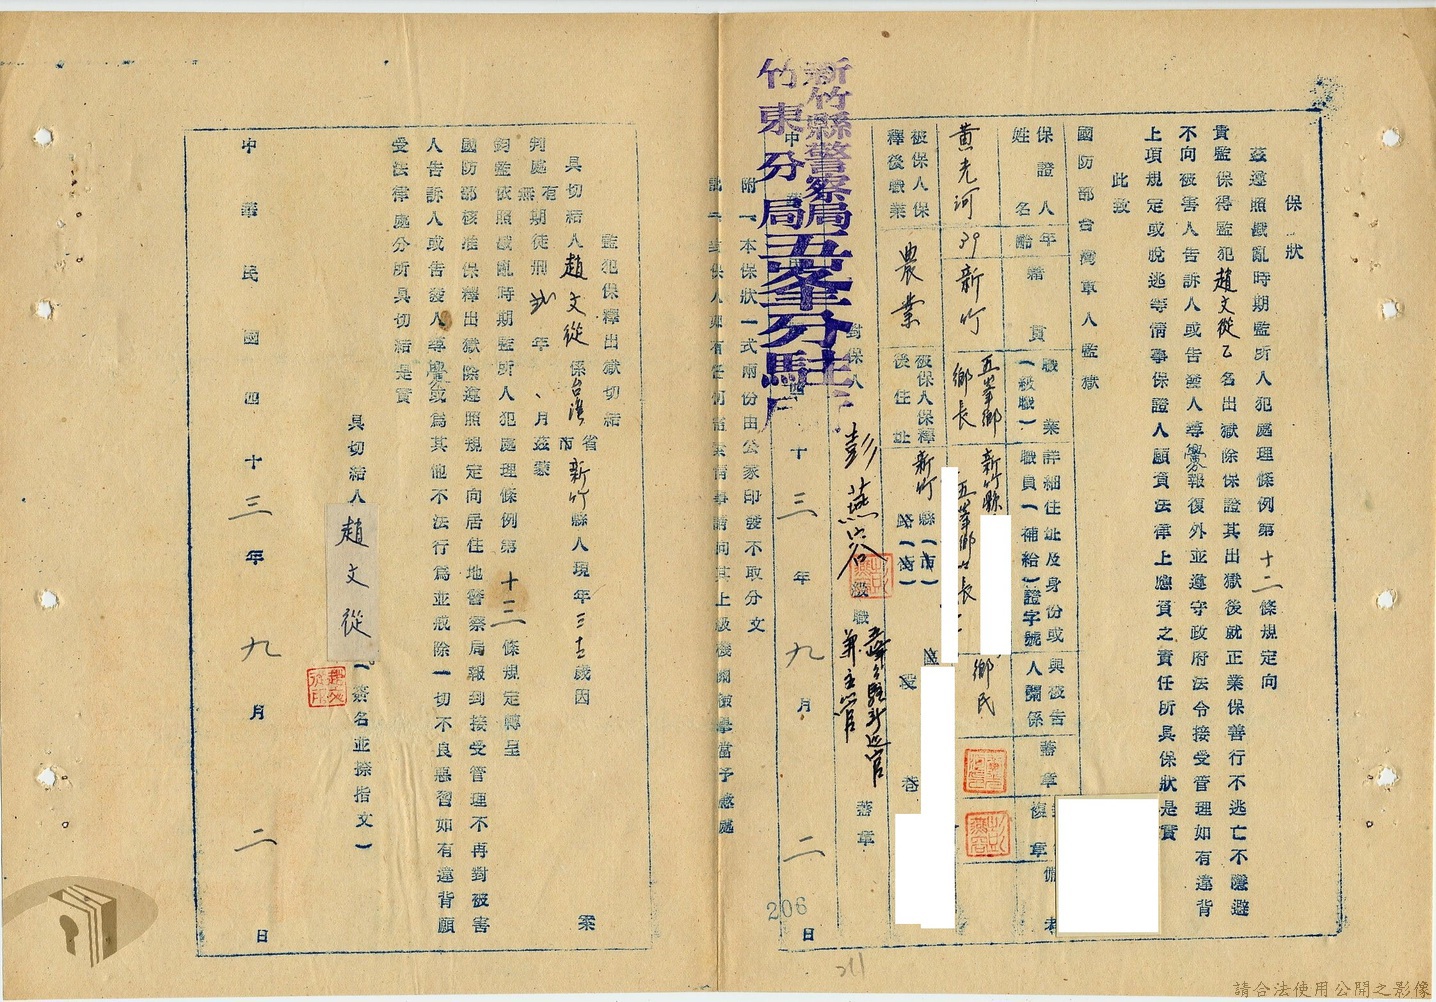 保狀
茲遵照戡亂時期監所人犯處理條例第十二條規定向
貴監保得監犯趙文從乙名出獄除保證其出獄後就正業保善行不逃亡不隱避
不向被害人告訴人或告發人尋釁報復外並遵守政府法令接受管理如有違背
上項規定或脫逃等情事保證人願負法律上應負之責任所具保狀是實
此致
國防部台灣軍人監獄
保證人姓名
年齡
籍貫
職業(級職)
詳細住址及身份或職員(補給)證字號
與被告人關係
蓋章
黃光河
39
新竹
五峯鄉鄉長
新竹縣
五峯鄉
鄉民
被保人保釋後職業
農業
被保人保釋後住址
新竹縣(市)
路(街)
段
巷
對保人
彭燕容
級職
兼主管
蓋章
十三年九月二日
附一本保狀一式兩份由公家印發不取分文
新竹縣警察局
竹東分局五峯分駐
206
監犯保釋出獄切結
具切結人趙文從係台灣省市新竹縣人現年三十二歲因
案
判處有無期徒刑貳年、月茲蒙
鈞監依照戡亂時期監所人犯處理條例第十二條規定轉呈
國防部核准保釋出獄除遵照規定向居住地警察局報到接受管理不再對被害
人告訴人或告發人尋釁或為其他不法行為並戒除一切不良惡習如有違背願
受法律處分所具切結是實
具切結人趙文從(簽名並捺指文)
中華民國四十三年九月二日
請合法使用公開之影像